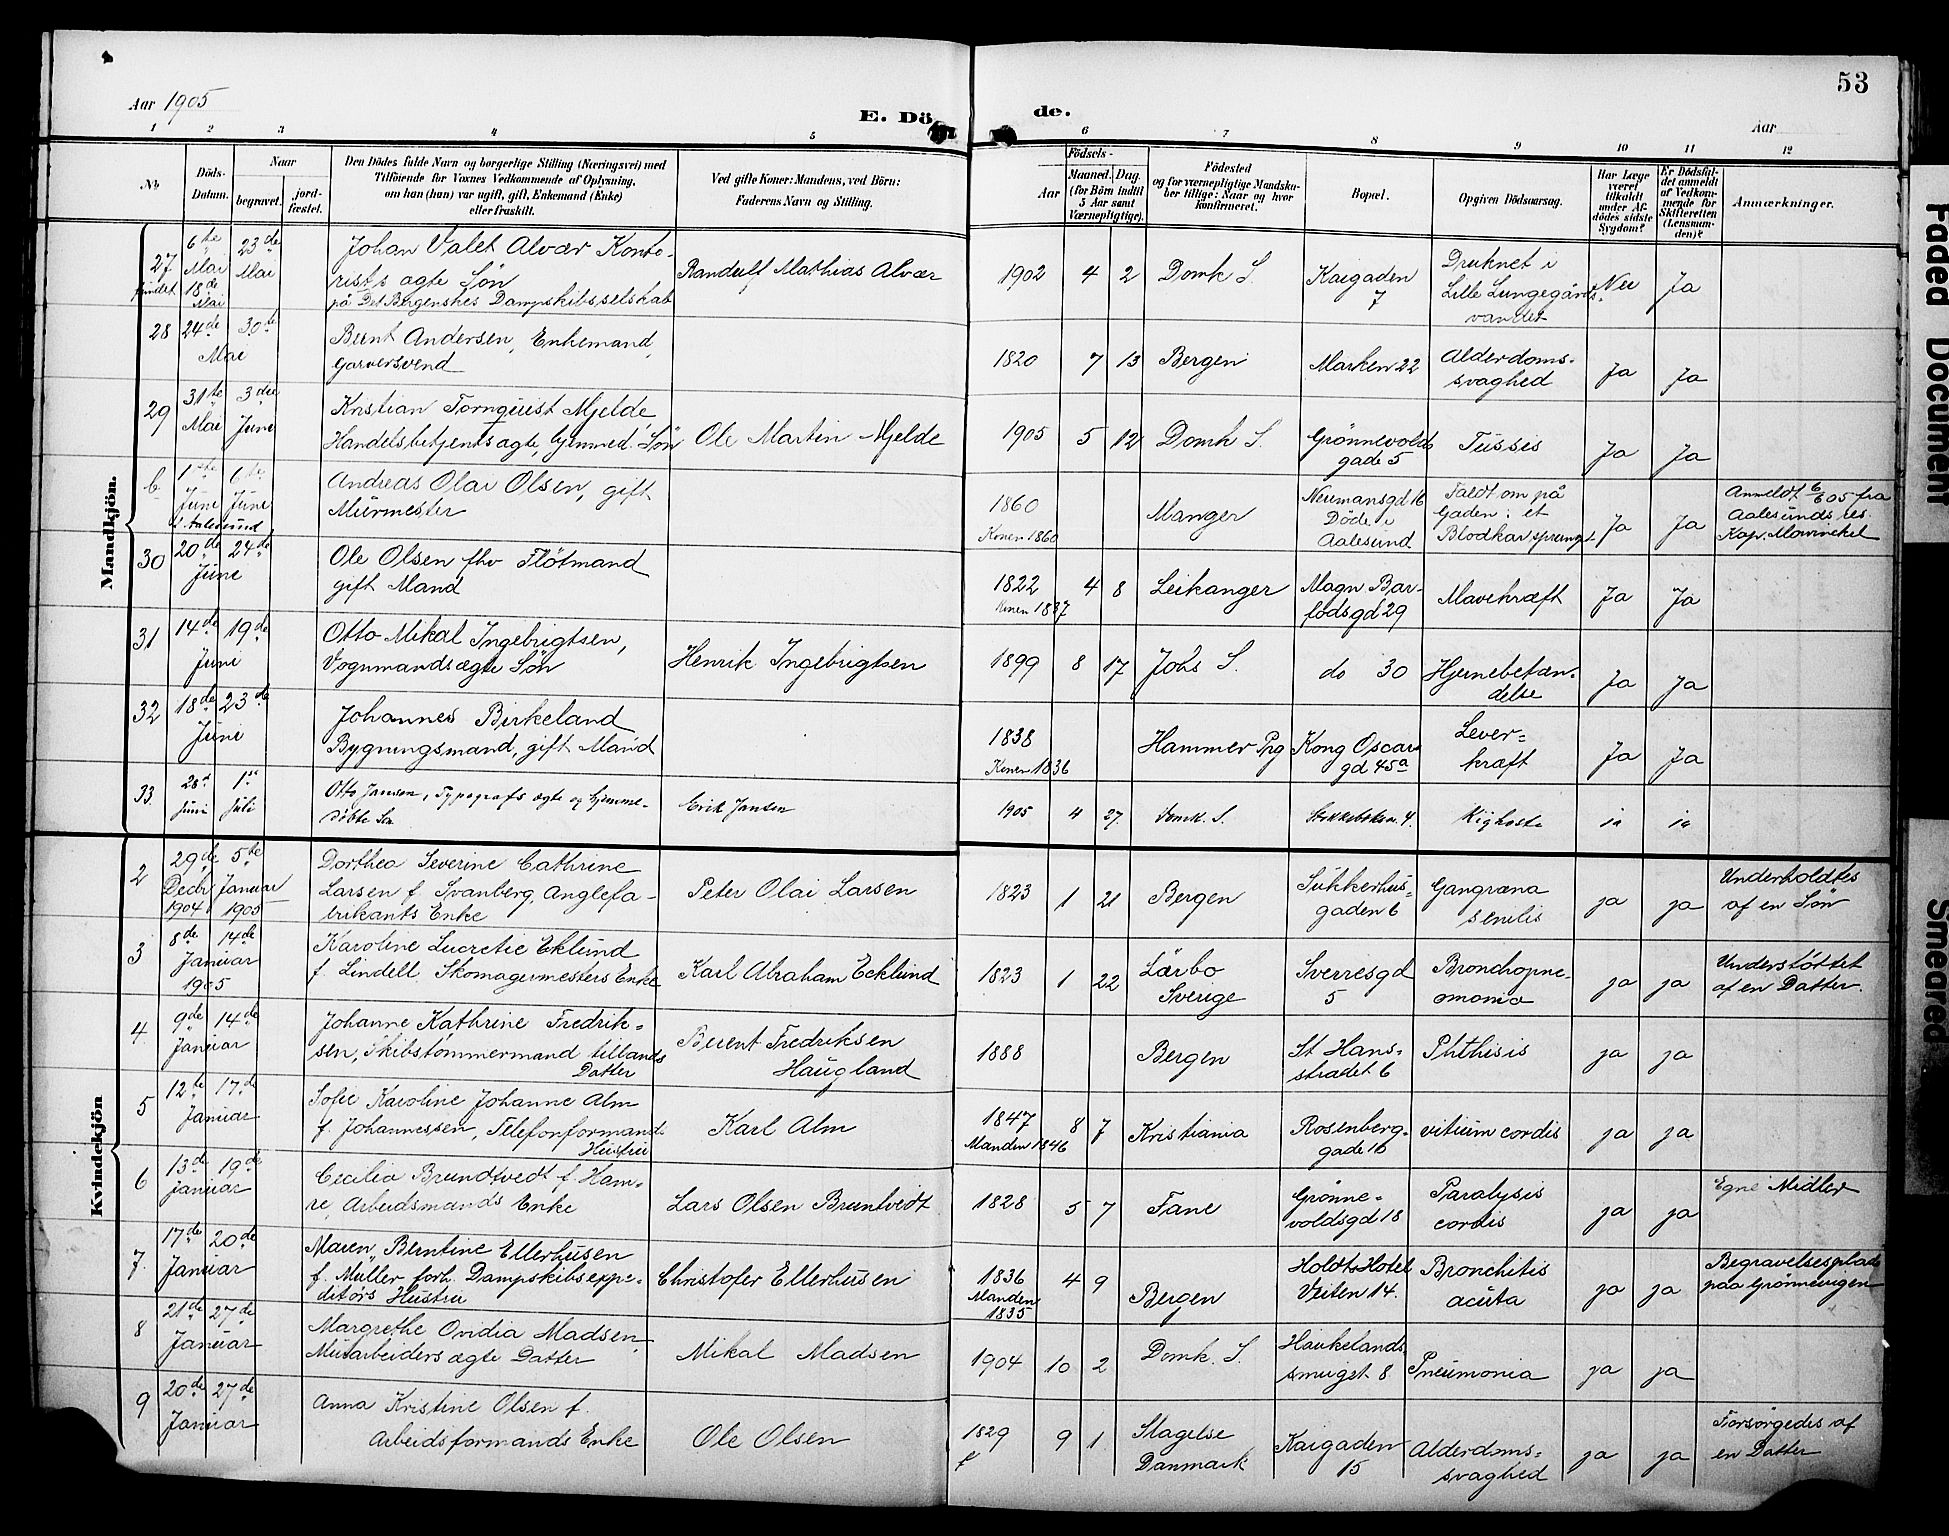 Aar 1905
E. Dö
de.
53
Aar
1 2 3 4 5 6 7 8 9 10 11 12
No
Döds-
Datum.
Naar
begravet.
jord-
fæstet.
Den Dödes fulde Navn og borgerlige Stilling (Næringsvei) med
Tilföiende for Voxnes Vedkommende af Oplysning,
om han (hun) var ugift, gift, Enkemand (Enke)
eller fraskilt.
Ved gifte Koner: Mandens, ved Börn:
Faderens Navn og Stilling.
Födsels-
Aar
Maaned.
Dag
(for Börn indtil
5 Aar samt
Værnepligtige).
Födested
og for værnepligtige Mandska-
ber tillige: Naar og hvor
konfirmeret.
Bopæl.
Opgiven Dödsaarsag.
Har Læge
været
tilkaldt
under Af-
dödes sidste
Sygdom?
Er Dödsfal-
det anmeldt
af Vedkom-
mende for
Skifteretten
(Lensman-
den)?
Anmærkninger.
Mandkjön.
27
6te Mai
fundet 18de Mai
23de Mai
Johan Valet Alvær Konto-
rists ægte Søn
på Det Bergenskes Dampskibsselskab
Randulf Mathias Alvær
1902 4 2
Domk S.
Kaigaden
7
Druknet i
Lille Lungegårds-
vandet
Nei
Ja
28
24de 30te
Mai
Bernt Andersen, Enkemand,
Garversvend
1820 7 13
Bergen
Marken 22
Alderdoms-
svaghed
Ja
Ja
29
31te Mai
3die Juni
Kristian Tornquist Mjelde,
Handelsbetjents ægte, hjemmed. Søn
Ole Martin Mjelde
1905 5 12
Domk S.
Grönnevolds
gade 5
Tussis
Ja
Ja
b.
1ste Juni
6te Juni
i Aalesund
Andreas Olai Olsen, gift
Murmester
1860
Konen 1860
Manger
Neumansgd 16
Döde i
Aalesund
Faldt om på
Gaden: et
Blodkar sprunget
Ja
Ja
Anmeldt 6/6 05 fra
Aalesunds res.
Kap. Mowinckel
30
20de 24de
Juni
Ole Olsen fhv Fløtmand
gift Mand
1822 4 8
Konen 1837
Leikanger
Magn Bar-
fodsgd 29
Mavekræft
Ja
Ja
31
14de 19de
Juni
Otto Mikal Ingebrigtsen,
Vognmands ægte Søn
Henrik Ingebrigtsen
1899 8 17
Johs S.
do 30
Hjernebetæn-
delse
Ja
Ja
32
18de 23de
Juni
Johannes Birkeland
Bygningsmand, gift Mand
1838
Konen 1836
Hammer Prg
Kong Oscars
gd 45a
Lever-
kræft
Ja
Ja
33.
Juni
1ste Juli
Otto Jansen, Typografs ægte og hjemme-
döbte Søn
Erik Jansen
1905 4 27
Domk. S.
Kighoste
ja
ja
Kvindekjön
2
29de Decbr 1904
5te Januar 1905
Dorthea Severine Cathrine
Larsen f. Svanberg, Anglefa-
brikants Enke
Peter Olai Larsen
1823 1 21
Bergen
Sukkerhus-
gaden 6
Gangræna
senilis
ja
ja
Underholdtes
af en Søn
3
8de 14de
Januar
1905
Karoline Lucretie Eklund
f. Lindell Skomagermesters Enke
Karl Abraham Ecklund
1823 1 22
Lärbo
Sverige
Sverresgd
5
Bronchopne-
omonia
ja
ja
Understöttet
af en Datter.
4
9de 14de
Januar
Johanne Kathrine Fredrik-
sen, Skibstömmermand tillands
Datter
Berent Fredriksen
Haugland
1888
Bergen
St Hans-
strædet 6
Phthisis
ja
ja
5
12te 17de
Januar
Sofie Karoline Johanne Alm
f. Johannessen, Telefonformand
Hustru
Karl Alm
1847 8 7
Manden 1846
Kristiania
Rosenberg-
gade 16
vitium cordis
ja
ja
6
13de 19de
januar
Cecilia Brundtvedt f. Ham-
re, Arbeidsmands Enke
Lars Olsen Bruntvedt
1828 5 7
Fane
Grønne-
voldsgd 18
Paralysis
cordis
ja
ja
Egne Midler
7.
17de 20de
Januar
Maren Berntine Ellerhusen
f. Müller forh. Dampskibsexpe-
ditørs Hustru
Christofer Ellerhusen
1836 4 9
Manden
1835
Bergen
Holdts Hotel
Veiten 14.
Bronchitis
acuta
ja
ja
Begravelsesplads
paa Grönnevigen
8
21de 27de
Januar
Margrethe Ovidia Madsen,
Murarbeiders ægte Datter
Mikal Madsen
1904 10 2
Domk. S.
Haukelands
smuget 8
Pneumonia
ja
ja
9
20de 27de
Januar
Anna Kristine Olsen f.
Arbeidsformands Enke
Ole Olsen
1829 9 1
f
Slagelse
Danmark
Kaigaden
15
Alderdoms-
svaghed
ja
ja
Forsörgedes af
en Datter
Faded Document
Smeared